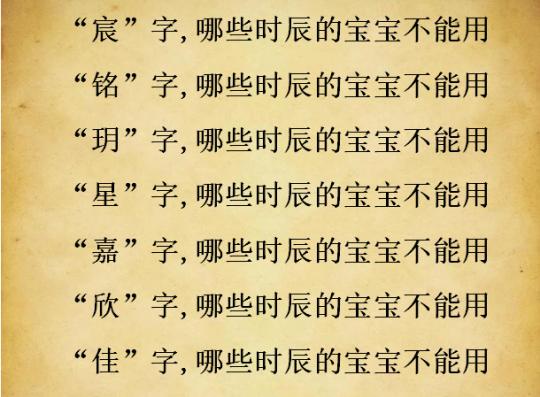 “宸”字,哪些时辰的宝宝不能用
“铭”字,哪些时辰的宝宝不能用
“玥”字,哪些时辰的宝宝不能用
“星”字,哪些时辰的宝宝不能用
“嘉”字,哪些时辰的宝宝不能用
“欣”字,哪些时辰的宝宝不能用
“佳”字,哪些时辰的宝宝不能用